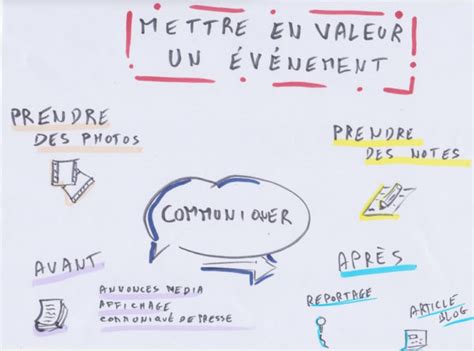 METTRE EN VALEUR
UN ÉVÉNEMENT
PRENDRE
DES PHOTOS
PRENDRE
DES NOTES
COMMUNIQUER
AVANT
ANNONCES MEDIA
AFFICHAGE
COMMUNIQUÉ DE PRESSE
APRÈS
REPORTAGE
ARTICLE
BLOG